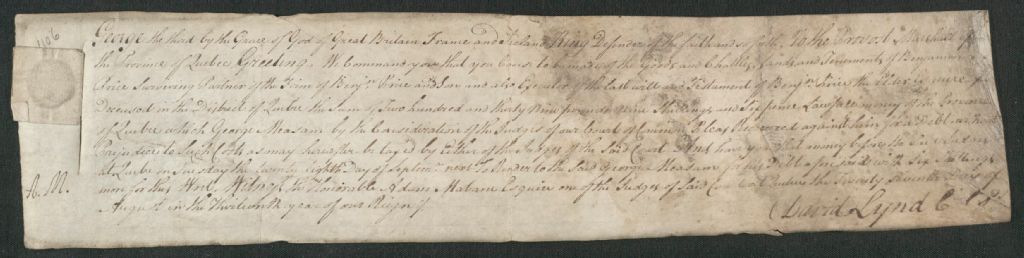 1106
George the third by the Grace of God of Great Britain France and Ireland King Defender of the faith and so forth. To the Provost Marshal of
the Province of Quebec Greeting. We Command you that you Cause to be made of the Goods and Chattles Lands and Tenements of Benjamin
Price Surviving Partner of the Firm of Benjn. Price and Son and also Executor of the last will and Testament of Benjn. Price the Elder
Deceased in the District of Quebec the Sum of Two hundred and thirty Nine pounds Nine Shillings and Sixpence Lawful money of the Province
of Quebec which George Measam by the Consideration of the Judges of our Court of Common Pleas Recovered against him for Debt without
Prejudice to Such Costs as may hereafter be taxed by either of the Judges of the Said Court And have you that money before the
at Quebec on Tuesday the Twenty eighth Day of Septemr. next To Render to the Said George Measam for his Debt aforesaid with Six Shillings
more for this Writ. Witness the Honorable Adam Mabane Esquire one of the Judges of Said Court at Quebec the Twenty Seventh Day of
August in the Thirteenth year of our Reign
A. M.
David Lynd